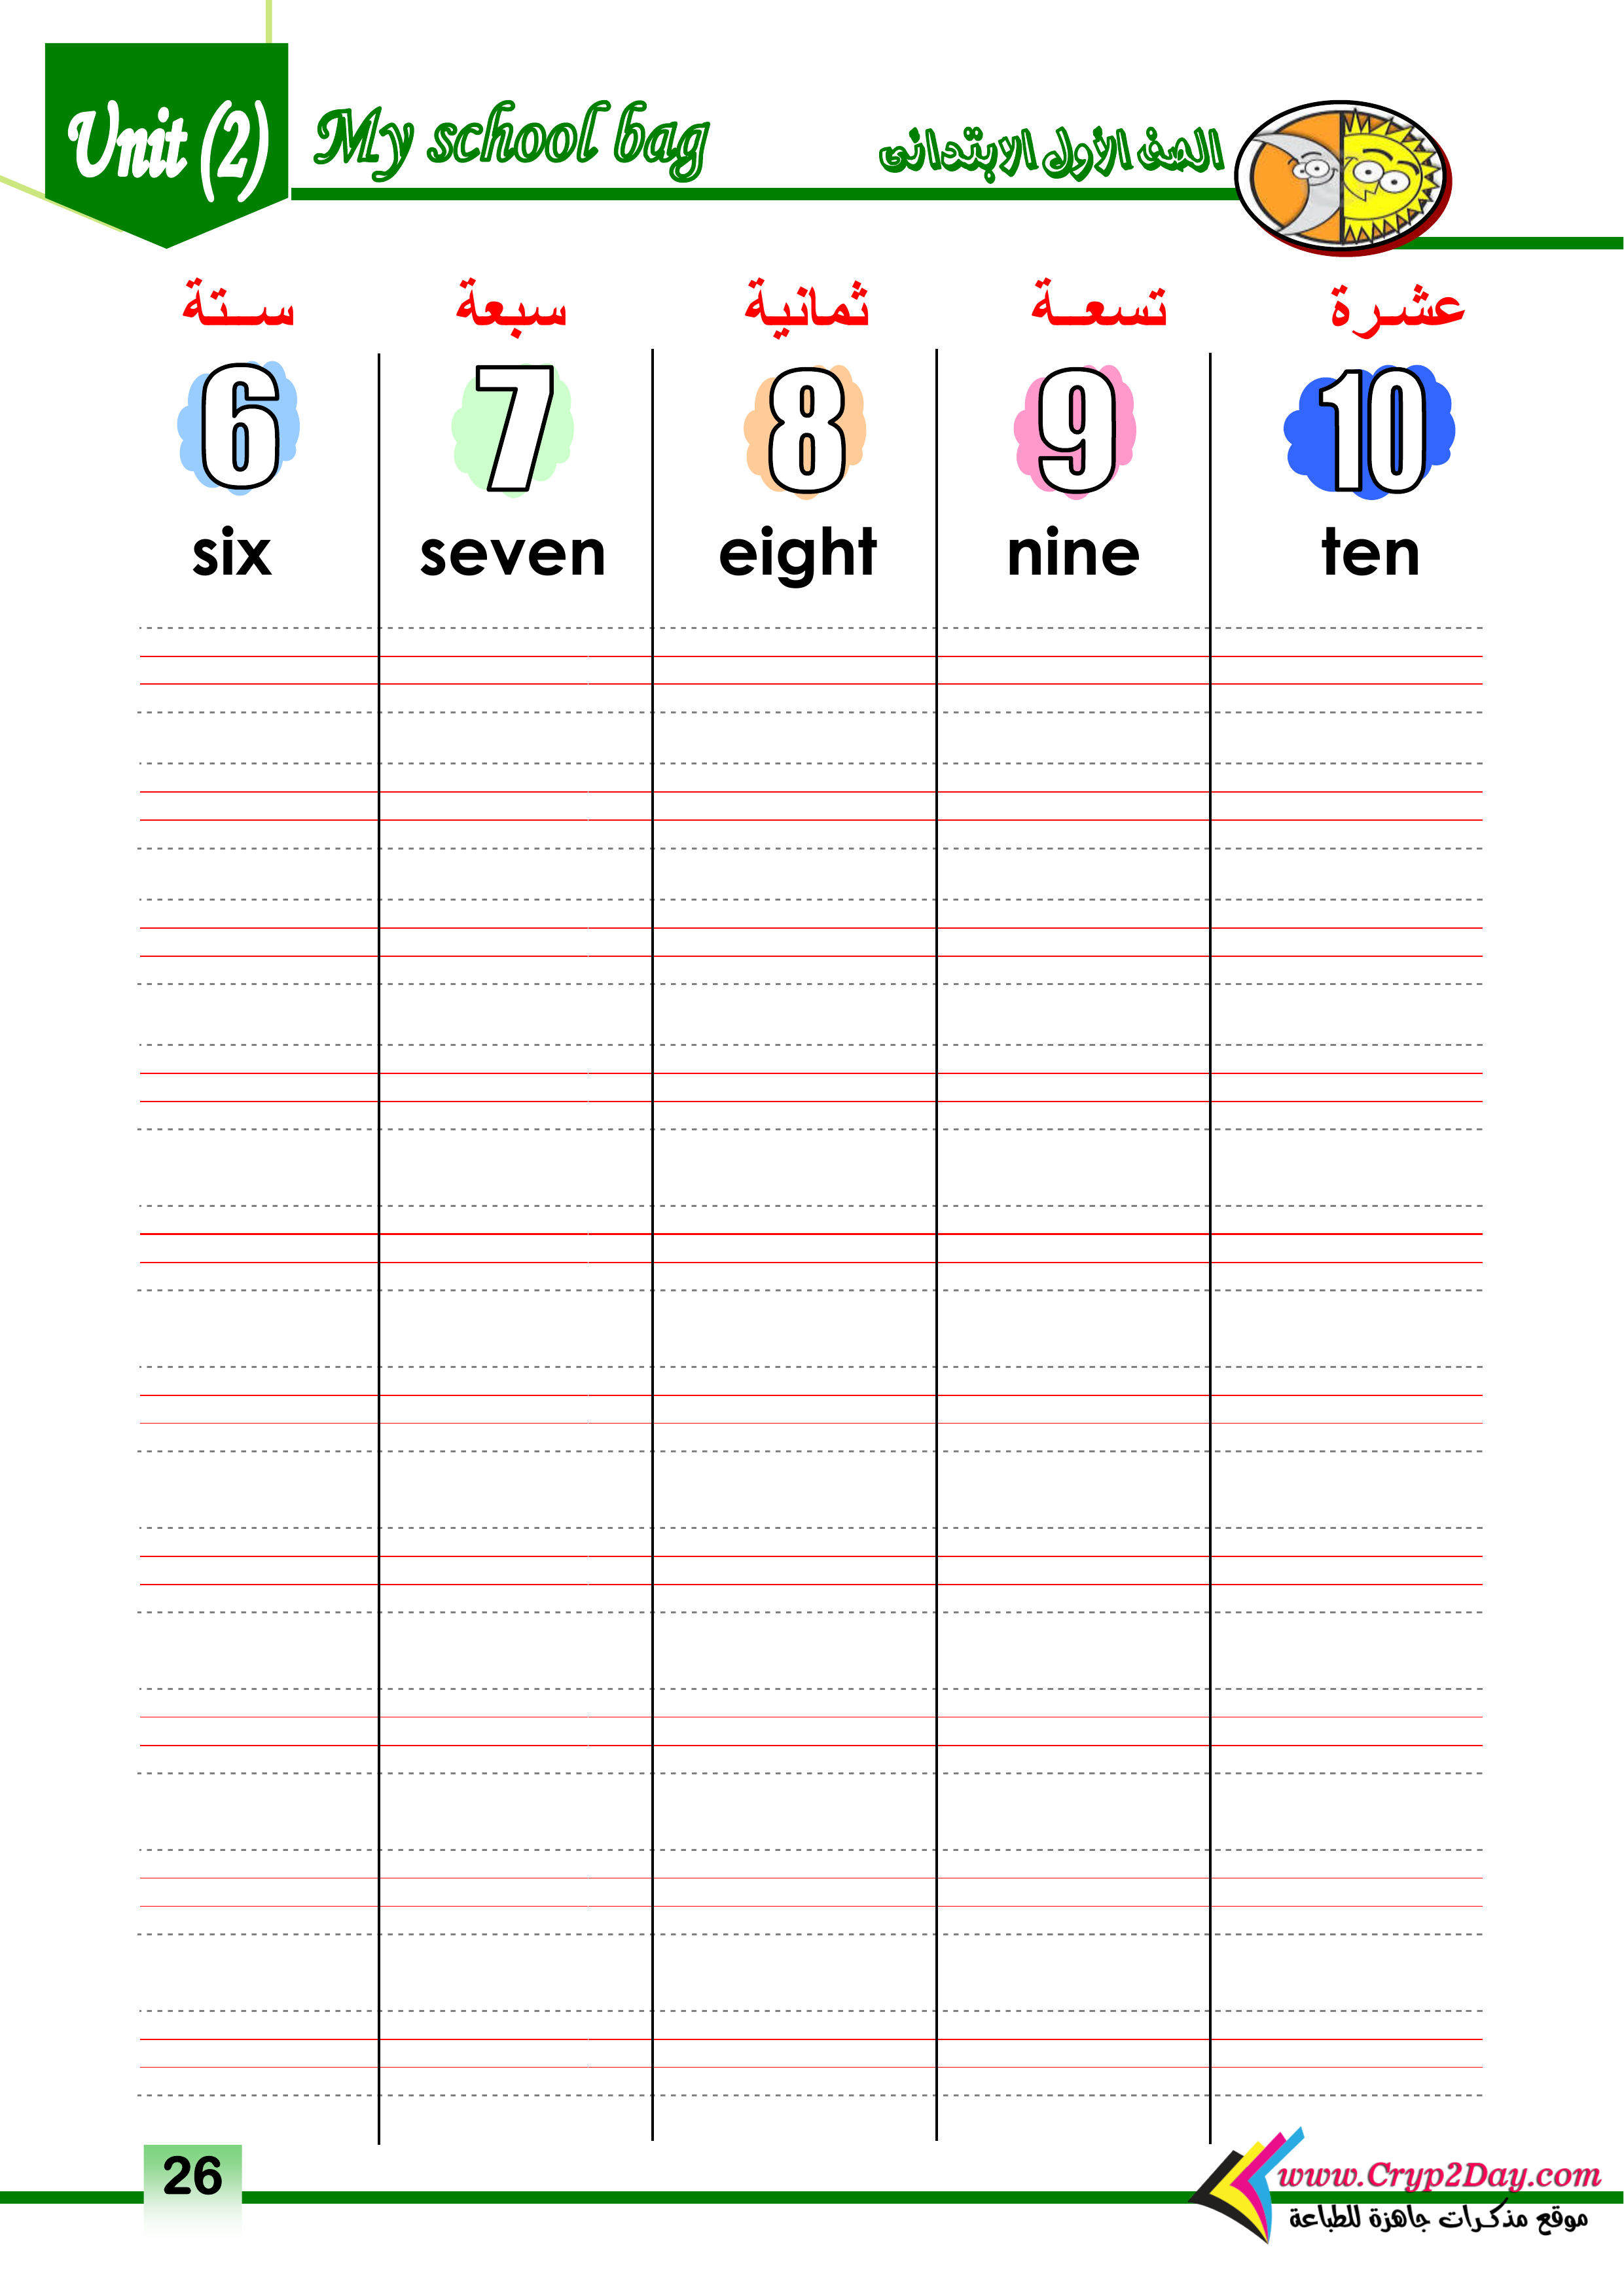 Unit (2) My school bag الصف الأول الابتدائى
ستة سبعة ثمانية تسعة عشرة
6 7 8 9 10
six seven eight nine ten
26
www.Cryp2Day.com
موقع مذكرات جاهزة للطباعة